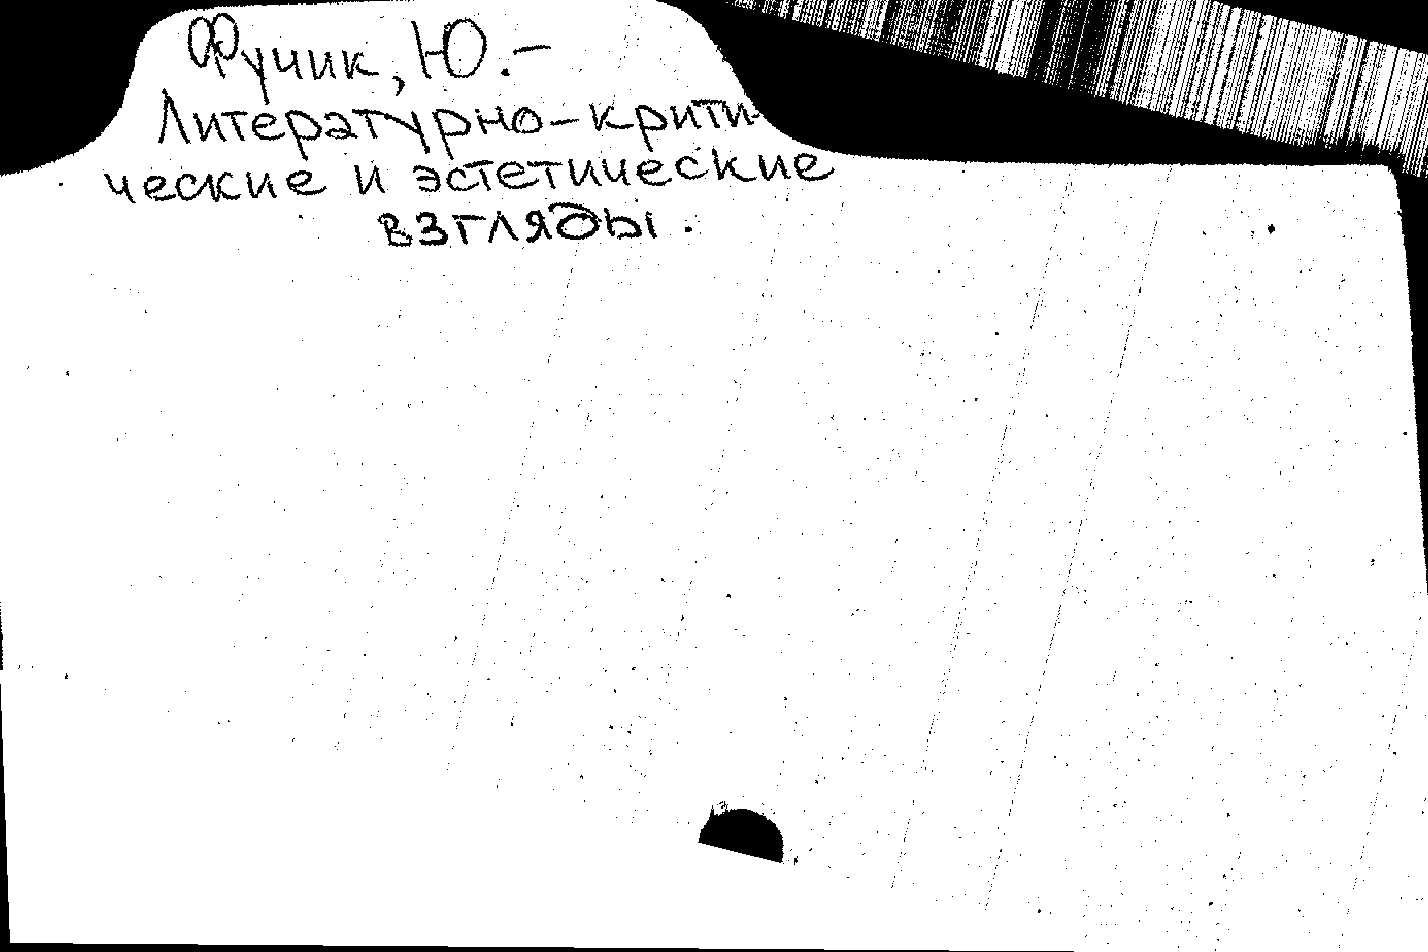 Фучик, Ю. –
Литературно-крити-
ческие и эстетические
взгляды.